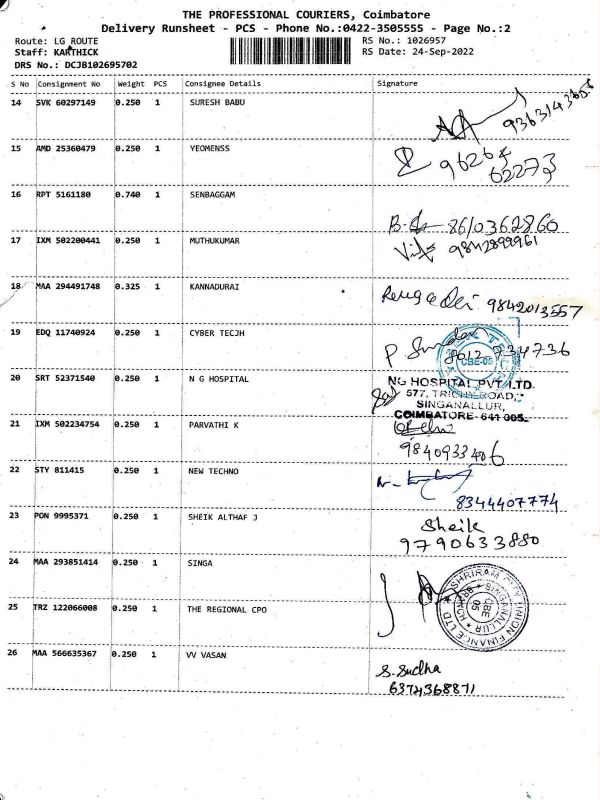 THE PROFESSIONAL COURIERS, Coimbatore
Delivery Runsheet - PCS - Phone No.:0422-3505555 - Page No.:2
Route: LG ROUTE RS No.: 1026957
Staff: KARTHICK RS Date: 24-Sep-2022
DRS No.: DCJB102695702
S No Consignment No Weight PCS Consignee Details Signature
14 SVK 60297149 0.250 1 SURESH BABU
15 AMD 25360479 0.250 1 YEOMENSS
96265
62273
16 RPT 5161180 0.740 1 SENBAGGAM
8610362860
17 IXM 502200441 0.250 1 MUTHUKUMAR
9842899961
18 MAA 294491748 0.325 1 KANNADURAI
9842013557
19 EDQ 11740924 0.250 1 CYBER TECJH
CBE-05
20 SRT 52371540 0.250 1 N G HOSPITAL
NG HOSPITAL PVT LTD.
577, TRICHY ROAD,
SINGANALLUR,
COIMBATORE- 641 005.
21 IXM 502234754 0.250 1 PARVATHI K
9840933406
22 STY 811415 0.250 1 NEW TECHNO
8344407774
23 PON 9995371 0.250 1 SHEIK ALTHAF J
Sheik
9790633880
24 MAA 293851414 0.250 1 SINGA
25 TRZ 122066008 0.250 1 THE REGIONAL CPO
SHRIRAM CITY UNION FINANCE LTD
SINGANALLUR
CBE
05
26 MAA 566635367 0.250 1 VV VASAN
S. Sudha
6374368871